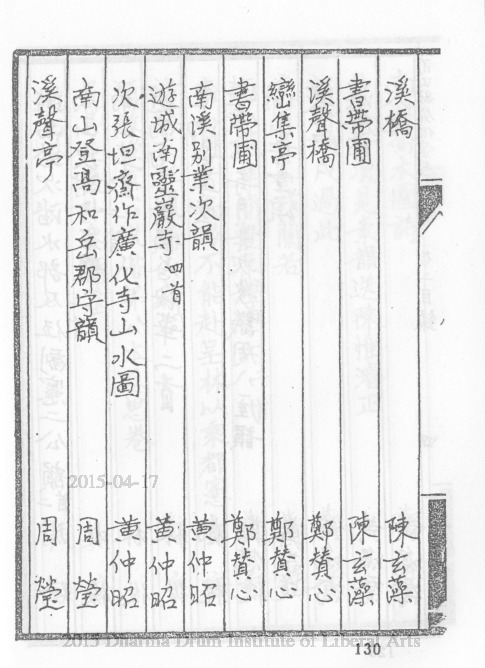 溪橋 陳玄藻
書帶圃 陳玄藻
溪聲橋 鄭賛心
巒集亭 鄭賛心
書帶圃 鄭賛心
南溪别業次韻 黃仲昭
遊城南靈巖寺 四首 黃仲昭
次張坦齋作廣化寺山水圖 黃仲昭
南山登高和岳郡守韻 周瑩
溪聲亭 周瑩
2015-04-17
2015 Dharma Drum Institute of Liberal Arts
130